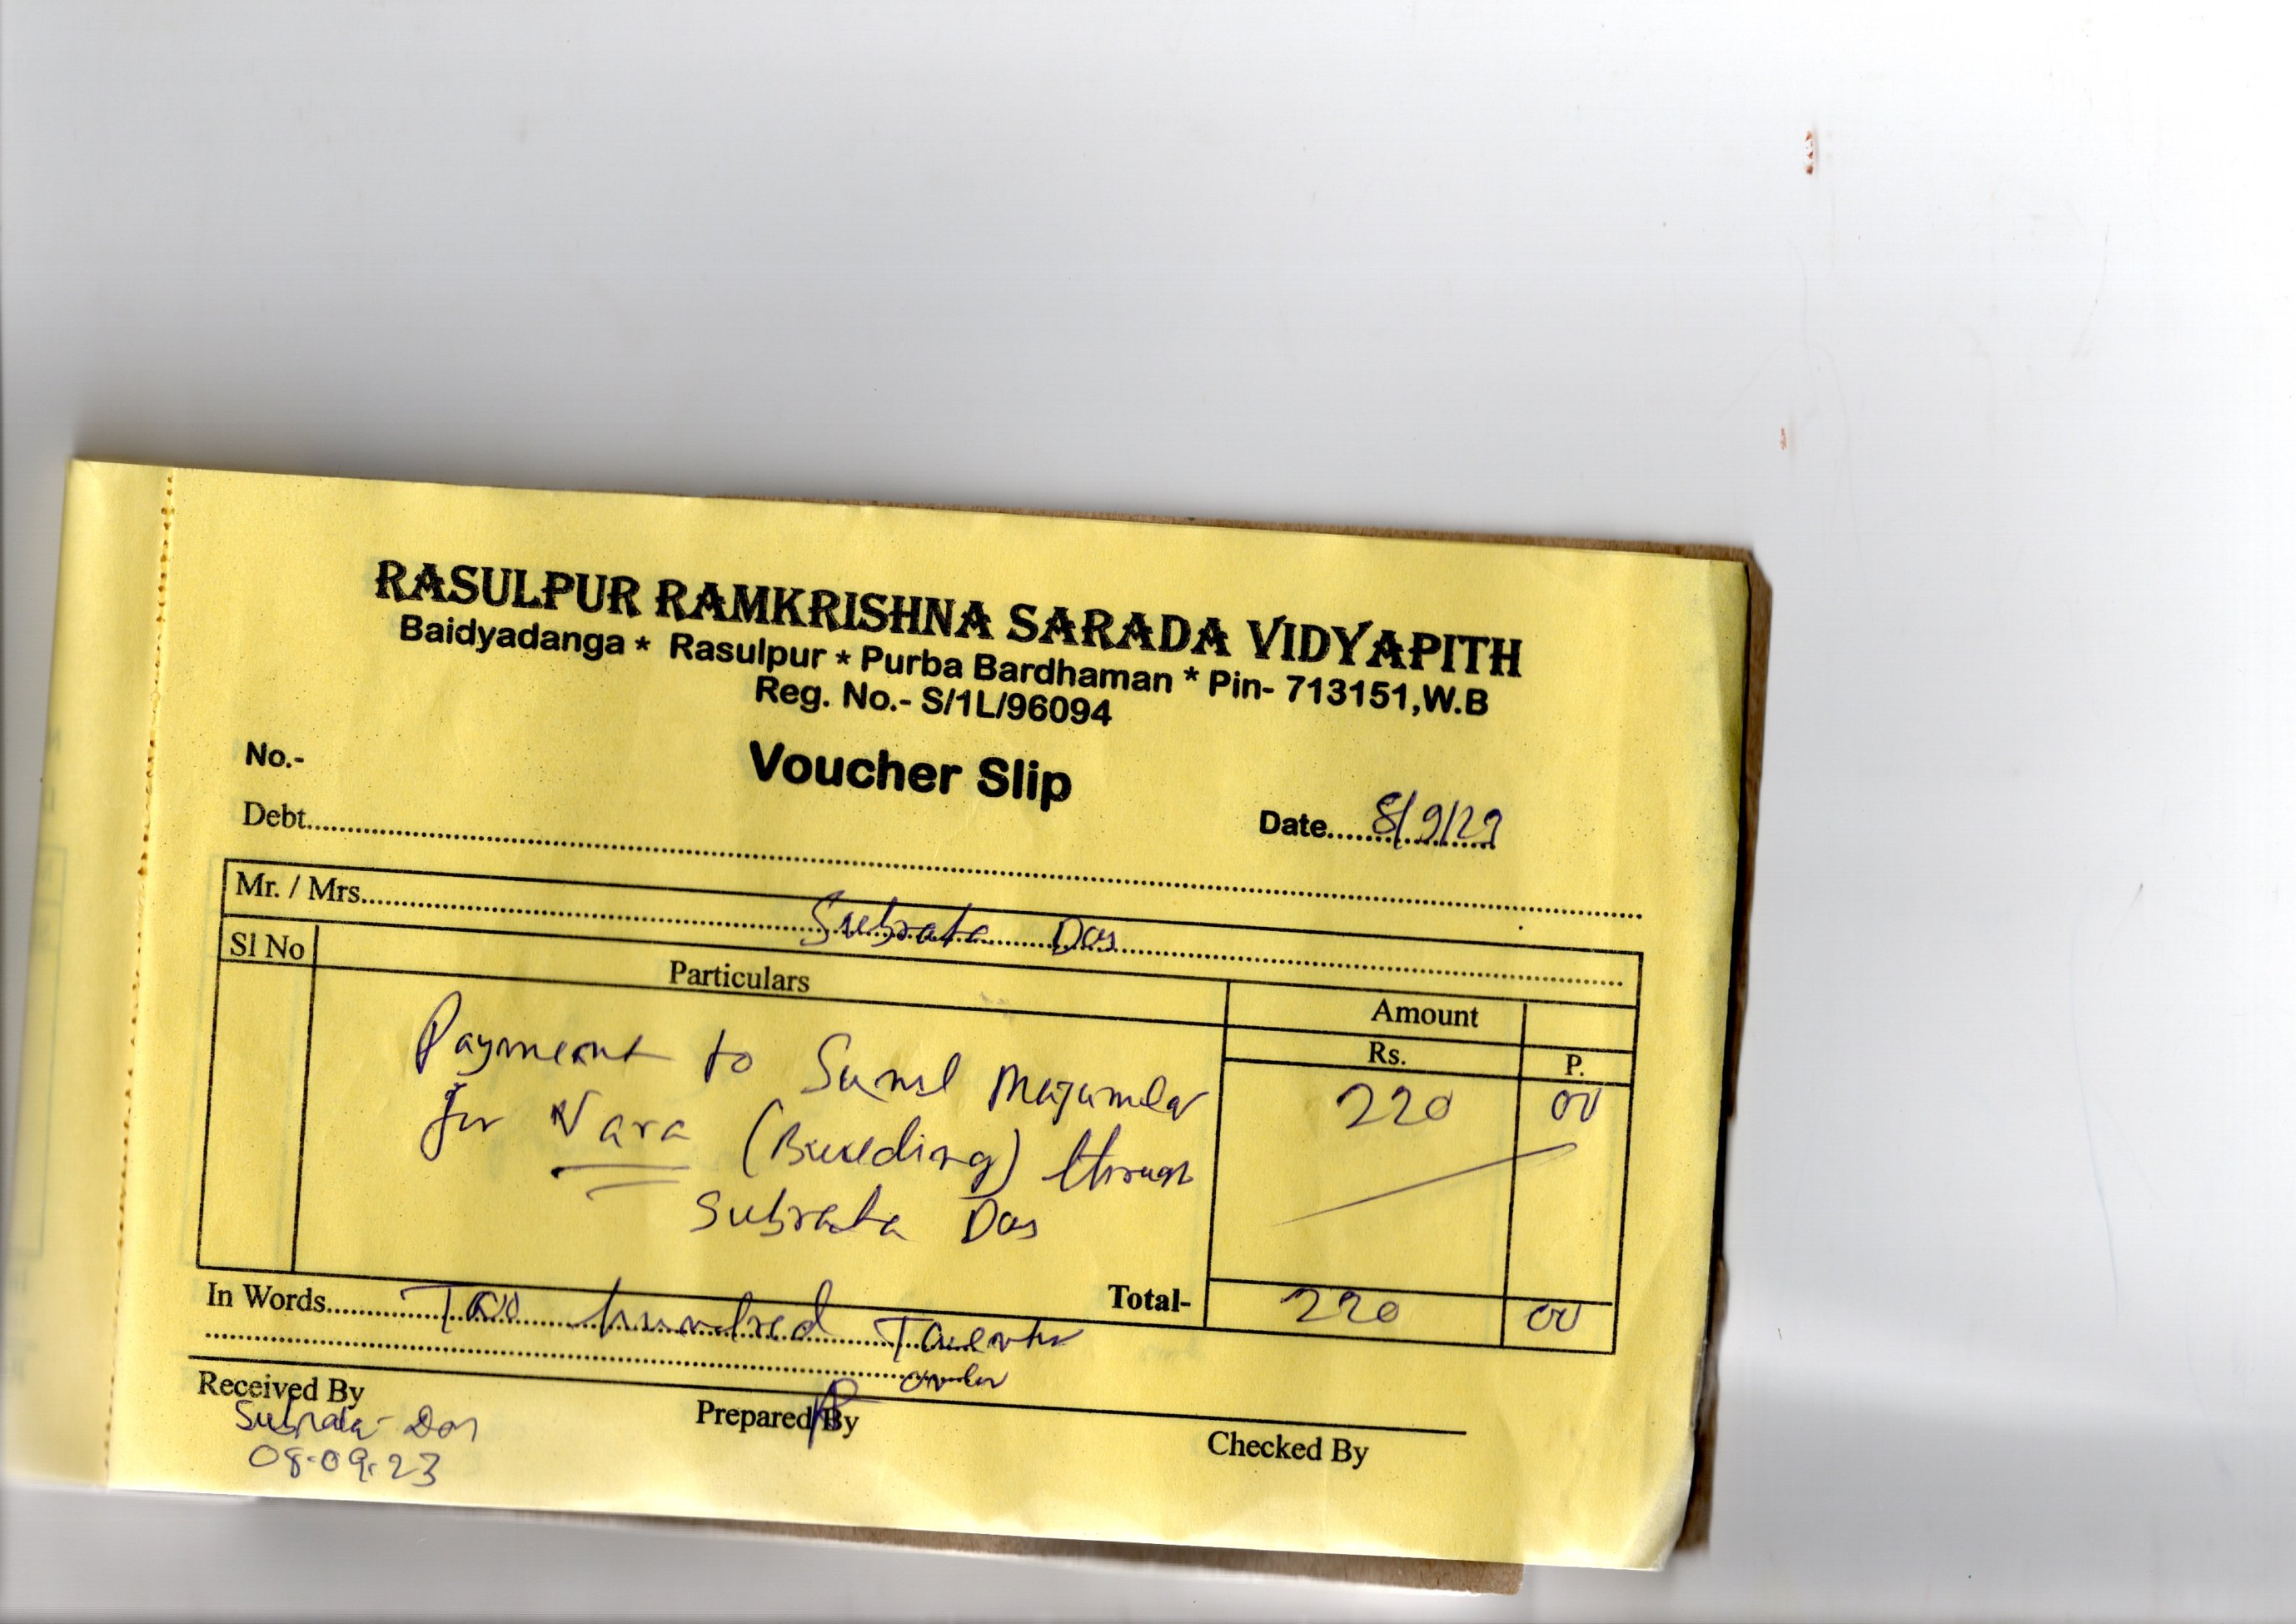 RASULPUR RAMKRISHNA SARADA VIDYAPITH
Baidyadanga * Rasulpur * Purba Bardhaman * Pin- 713151,W.B
Reg. No.- S/1L/96094
No.-
Voucher Slip
Debt
Date 8/9/23
Mr. / Mrs. Subrata Das
Sl No Particulars Amount
Rs. P.
Payment to Sunil Majumder 220 00
for Vara (Building) through
Subrata Das
Total- 220 00
In Words Two hundred Twenty
only
Received By Prepared By Checked By
Subrata Das
08.09.23